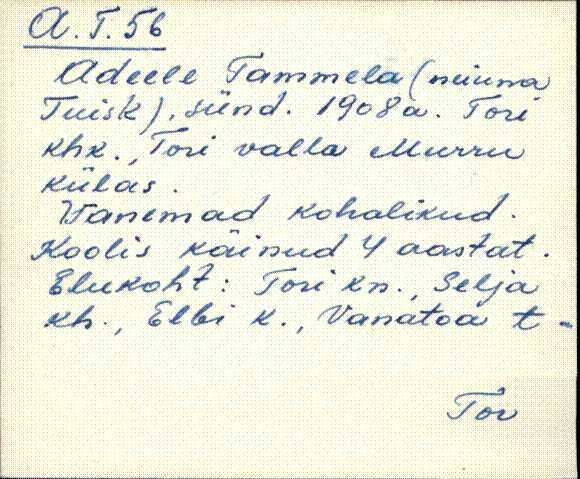 A. T. 56
Adeele Tammela (neiuna
Tuisk), sünd. 1908 a. Tori
khk., Tori valla Murru
külas.
Vanemad kohalikud.
Koolis käinud 4 aastat.
Elukoht: Tori kn., Selja
kh., Elbi k., Vanatoa t.
Tor